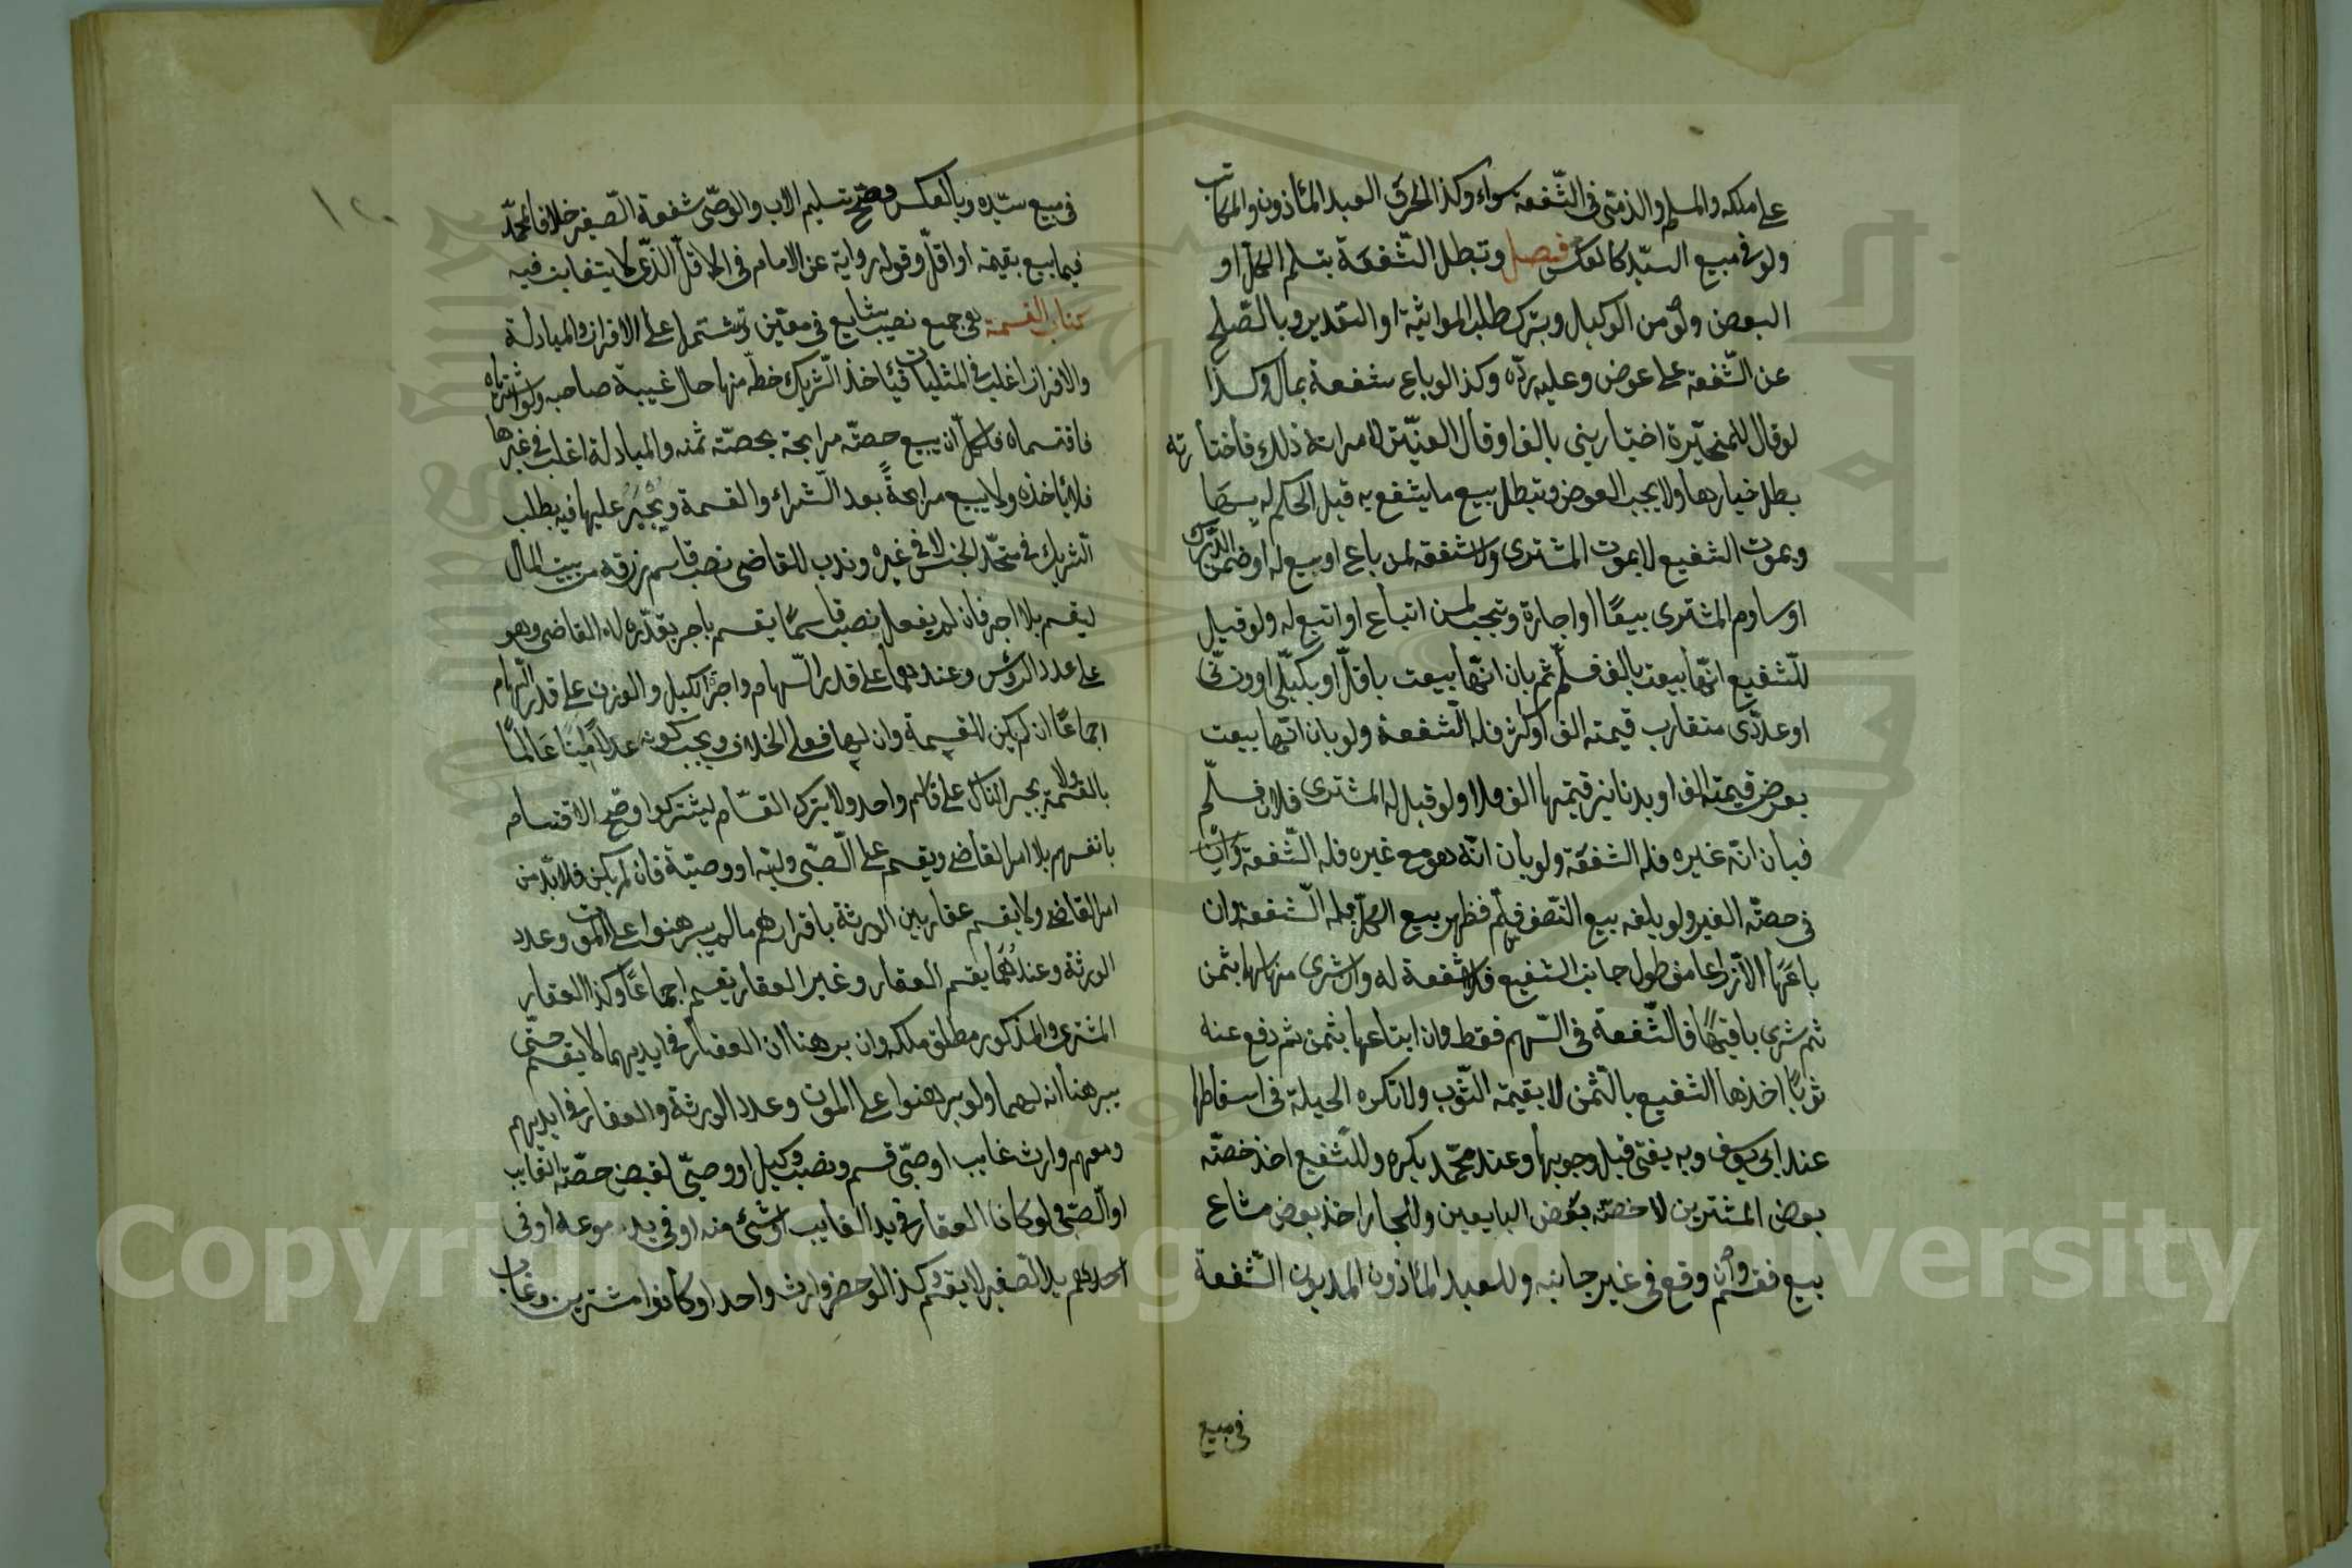 على ملكه والمسلم والذمّي في الشّفعة سواء وكذا الحرّ والعبد المأذون والمكاتب
ولو في مبيع السيّد كالعكس فصل وتبطل الشّفعة بتسليم الكلّ او
البعض ولو من الوكيل وبترك طلب المواثبة او التقدير وبالصّلح
عن الشّفعة على عوض وعليه ردّه وكذا لو باع شفعة بمال وكذا
لو قال للمخيّرة اختياريني بالف او قال العنّين لامراته ذلك فاختارته
بطل خيارها ولا يجب العوض وتبطل ببيع ما يشفع به قبل الحكم له بها
وبموت الشفيع لا بموت المشتري ولا شفعة لمن باع او بيع له او ضمن الدّرك
او ساوم المشتري بيعًا او اجارة وتجب لمن ابتاع او ابتيع له ولو قيل
للشّفيع انّها بيعت بالف فسلّم ثم بان انّها بيعت باقلّ او بكيلّي او وزنّي
او عددّي متقارب قيمته الف او اكثر فله الشّفعة ولو بان انّها بيعت
بعرض قيمته الف او بدنانير قيمتها الف فلا ولو قيل له المشتري فلان فسلّم
فبان انّه غيره فله الشفعة ولو بان انّه هو مع غيره فله الشّفعة
في حصّة الغير ولو بلغه بيع النّصف فسلّم فظهر بيع الكلّ فله الشّفعة وان
باعَهَا الّا ذراعا من طول جانب الشفيع فلا شفعة له وان شرى منها سهما بثمن
ثم شرى باقيهًا فالشّفعة في السّهم فقط وان ابتاعها بثمن ثم دفع عنه
ثوبًا اخذها الشفيع بالثّمن لا بقيمة الثّوب ولا تكره الحيلة في اسقاطها
عند ابي يوسف وبه يفتى قبل وجوبها وعند محمّد يكره وللشّفيع اخذ حصّة
بعض المشترين لا حصّة بعض البايعين وللجار اخذ بعض مشاع
بيع فقسم وان وقع في غير جانبه وللعبد المأذون المديون الشّفعة
في مبيع
١٢٠
في مبيع سيّده وبالعكس وصحّ تسليم الاب والوصّي شفعة الصّغير خلافا لمحمّد
فيما بيع بقيمته او اقلّ وقوله رواية عن الامام في الاقلّ الذّي لا يتغابن فيه
كتاب القسمة هي جمع نصيب شايع في معيّن وتشتمل على الافراز والمبادلة
والافراز اغلب في المثليات فيأخذ الشّريك حظّه منها حال غيبة صاحبه ولو اشترياه
فاقتسماه فلكلّ ان يبيع حصّته مرابحة بحصّة ثمنه والمبادلة اغلب في غيرها
فلا يأخذه ولا يبيع مرابحةً بعد الشّراء والقسمة ويُجبَرُ عليها فيه بطلب
الشّريك في متّحد الجنس لا في غيره وندب للقاضي نصب قاسم رزقه من بيت المال
ليقسم بلا اجر فان لم يفعل نصب قاسمًا يقسم باجر يقدّره له القاضي وهو
على عدد الرؤس وعندهما على قدر السّهام واجر الكيل والوزن على قدر السّهام
اجماعًا ان لم يكن للقسمة وان لها فعلى الخلاف ويجب كونه عدلا امينًا عَالمًا
بالقسمة ولا يجبر الناس على قاسم واحد ولا يترك القسّام ليشتركوا وصحّ الاقتسام
بانفسهم بلا امر القاضي ويقسم على الصّبي وليّه او وصيّة فان لم يكن فلا بدّ من
امر القاضي ولا يقسم عقار بين الورثة باقرارهم ما لم يبرهنوا على الموت وعدد
الورثة وعندهُمَا يقسم العقار وغير العقار يقسم اجماعًا وكذا العقار
المشترى والمذكور مطلق ملكه وان برهنا ان العقار في ايديهما لا يقسم حتّى
يبرهنا انه لهما ولو برهنوا على الموت وعدد الورثة والعقار في ايديهم
ومعهم وارث غايب او صبّي قسم ونصب وكيل او وصيّ لقبض حصّة الغايب
او الصّبي ولو كان العقار في يد الغايب او شيء منه او في يد مودعه او في
يد الصّغير لا يقسم كذا لو حضر وارث واحد او كانوا مشترين وغاب
احدهم
Copyright © King Saud University